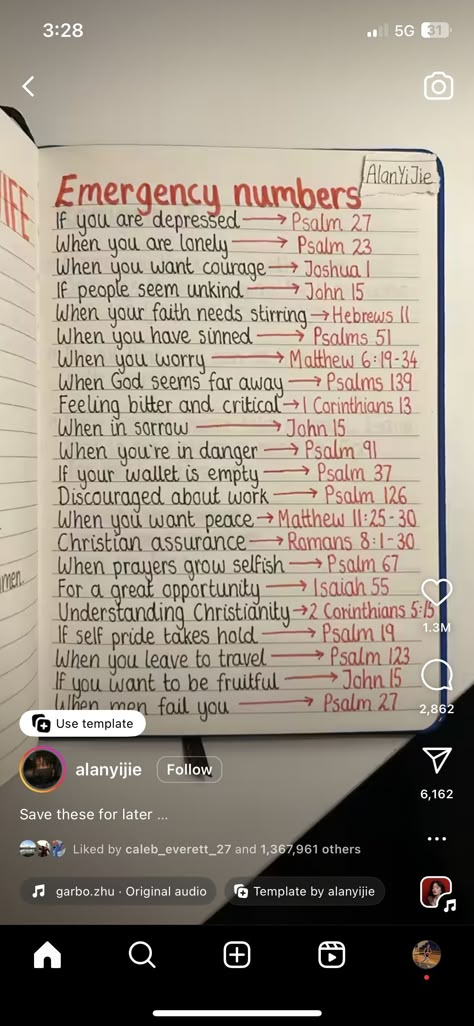 3:28
5G 31
IFE
AlanYiJie
Emergency numbers
If you are depressed → Psalm 27
When you are lonely → Psalm 23
When you want courage → Joshua 1
If people seem unkind → John 15
When your faith needs stirring → Hebrews 11
When you have sinned → Psalms 51
When you worry → Matthew 6:19-34
When God seems far away → Psalms 139
Feeling bitter and critical → 1 Corinthians 13
When in sorrow → John 15
When you're in danger → Psalm 91
If your wallet is empty → Psalm 37
Discouraged about work → Psalm 126
When you want peace → Matthew 11:25-30
Christian assurance → Romans 8:1-30
When prayers grow selfish → Psalm 67
men.
For a great opportunity → Isaiah 55
Understanding Christianity → 2 Corinthians 5:15
If self pride takes hold → Psalm 19
When you leave to travel → Psalm 123
If you want to be fruitful → John 15
When men fail you → Psalm 27
1.3M
2,862
6,162
Use template
alanyijie Follow
Save these for later ...
Liked by caleb_everett_27 and 1,367,961 others
garbo.zhu · Original audio
Template by alanyijie